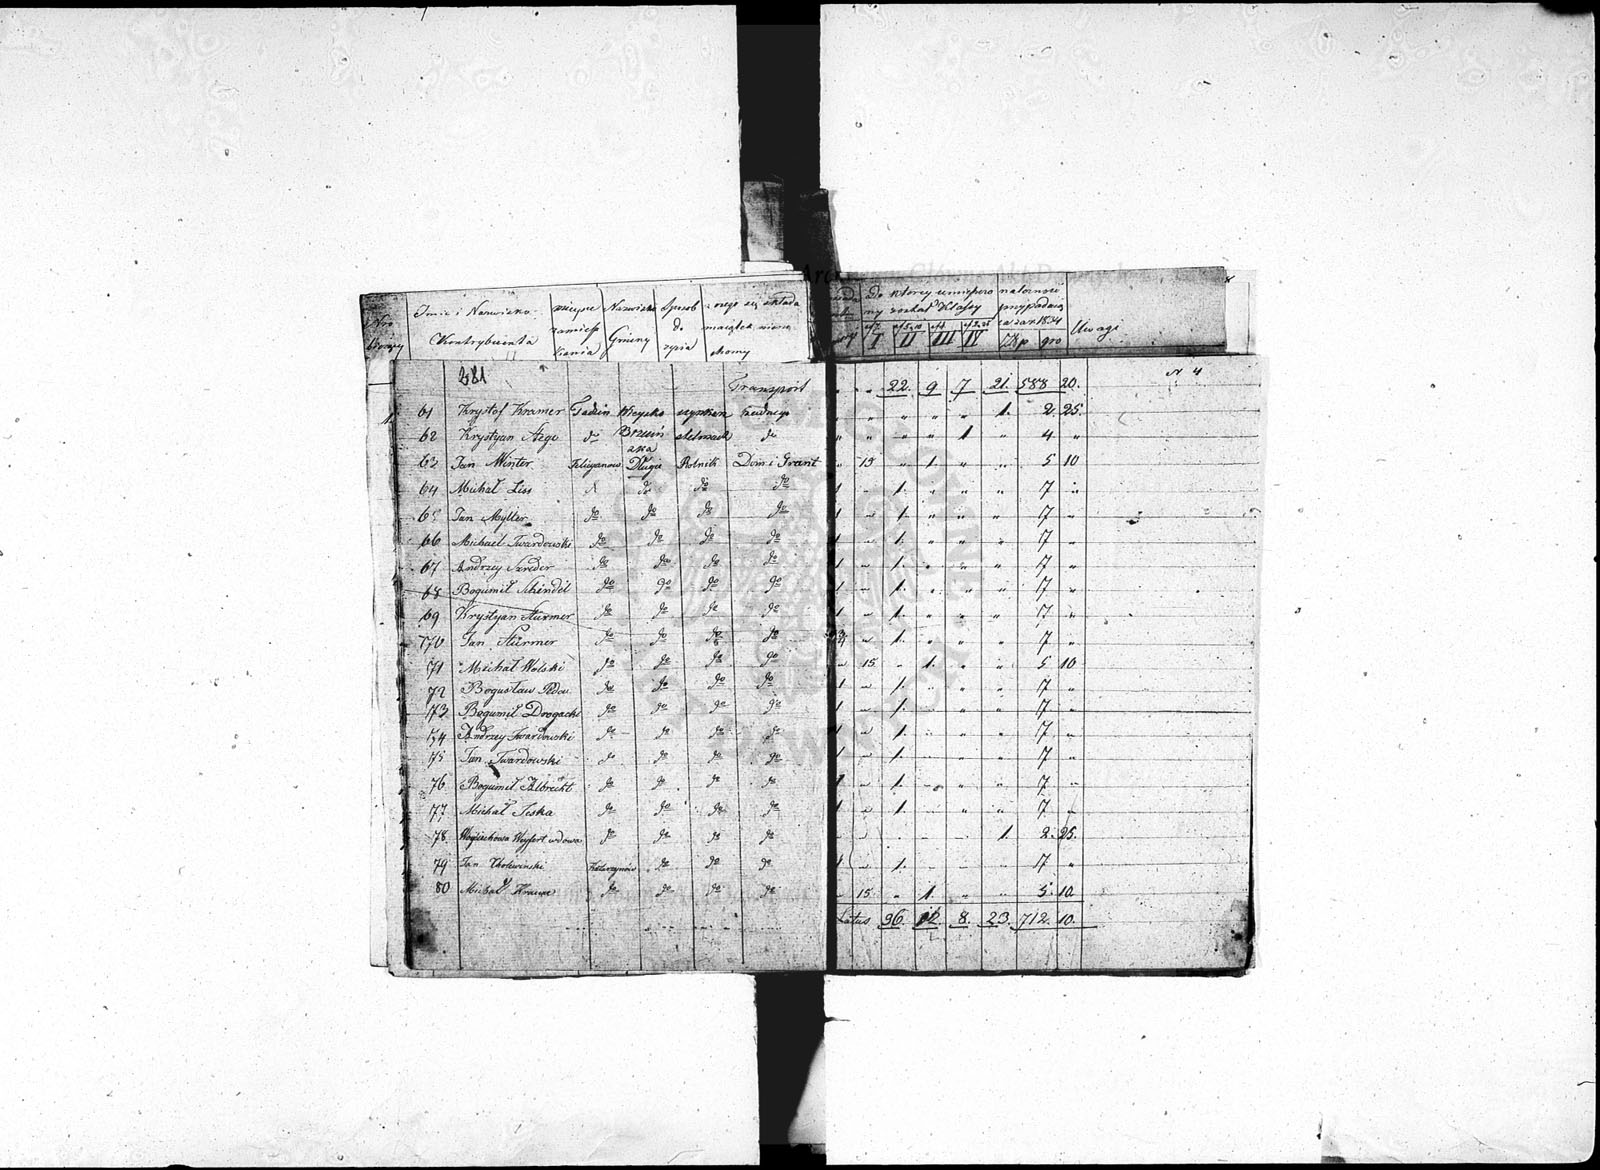 Nro
Imię i Nazwisko
Kontrybuenta
miejsce
zamiesz
kania
Nazwisko
Gminy
Sposób
do
życia
z czego się składa
majątek nieru
chomy
Do której umieszczo
ny został Klassy
I II III IV
należność
przypadająca
za rok 1834
Złp gro
Uwagi
281 Transport 22. 9 7 21. 588 20. N 4
61 Krysztof Kramer Tadzin 1. 2. 25.
62 Krystyan Stege do do 1 4 "
63 Jan Winter Felicyanow Długie Rolnik Dom i Grunt " 15 " 1. " " 5 10
64 Michał Liss do do do 1 " 1. " " " 7 "
65 Jan Mylter do do do do 1 " 1. " " " 7 "
66 Michael Twardowski do do do do 1 " 1. " " " 7 "
67 Andrzey Szreder do do do do 1 " 1. " " " 7 "
68 Bogumił Schindel do do do do 1 " 1. " " " 7 "
69 Krystyan Stürmer do do do do 1 " 1. " " " 7 "
70 Jan Stürmer do do do do " 1. " " " 7 "
71 Michał Wolski do do do do " 15 " 1. " " 5 10
72 Bogusław do do do do 1 " 1. " " " 7 "
73 Bogumił Drogacki do do do do 1 " 1. " " " 7 "
74 Andrzey Twardowski do do do do 1 " 1. " " " 7 "
75 Jan Twardowski do do do do 1 " 1. " " " 7 "
76 Bogumił Albrecht do do do do 1 " 1. " " " 7 "
77 Michał Teska do do do do 1 " 1. " " " 7 "
78 Woyciechowa Weyfert wdowa do do do do 1. 2. 25.
79 Jan Cholewinski Katarzynów do do do 1 " 1. " " " 7 "
80 Michał Krauze do do do do " 15 " 1. " " 5. 10
Latus 36 12 8. 23. 712. 10.